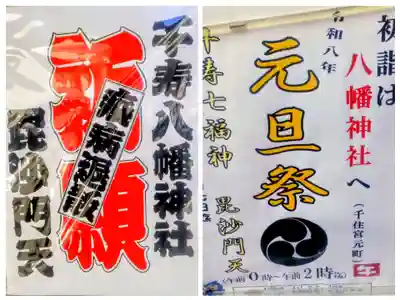 千寿八幡神社
祈願
疫病退散
毘沙門天
初詣は
八幡神社へ
(千住宮元町)
令和八年
元旦祭
千寿七福神
毘沙門天
(午前0時〜午前2時迄)